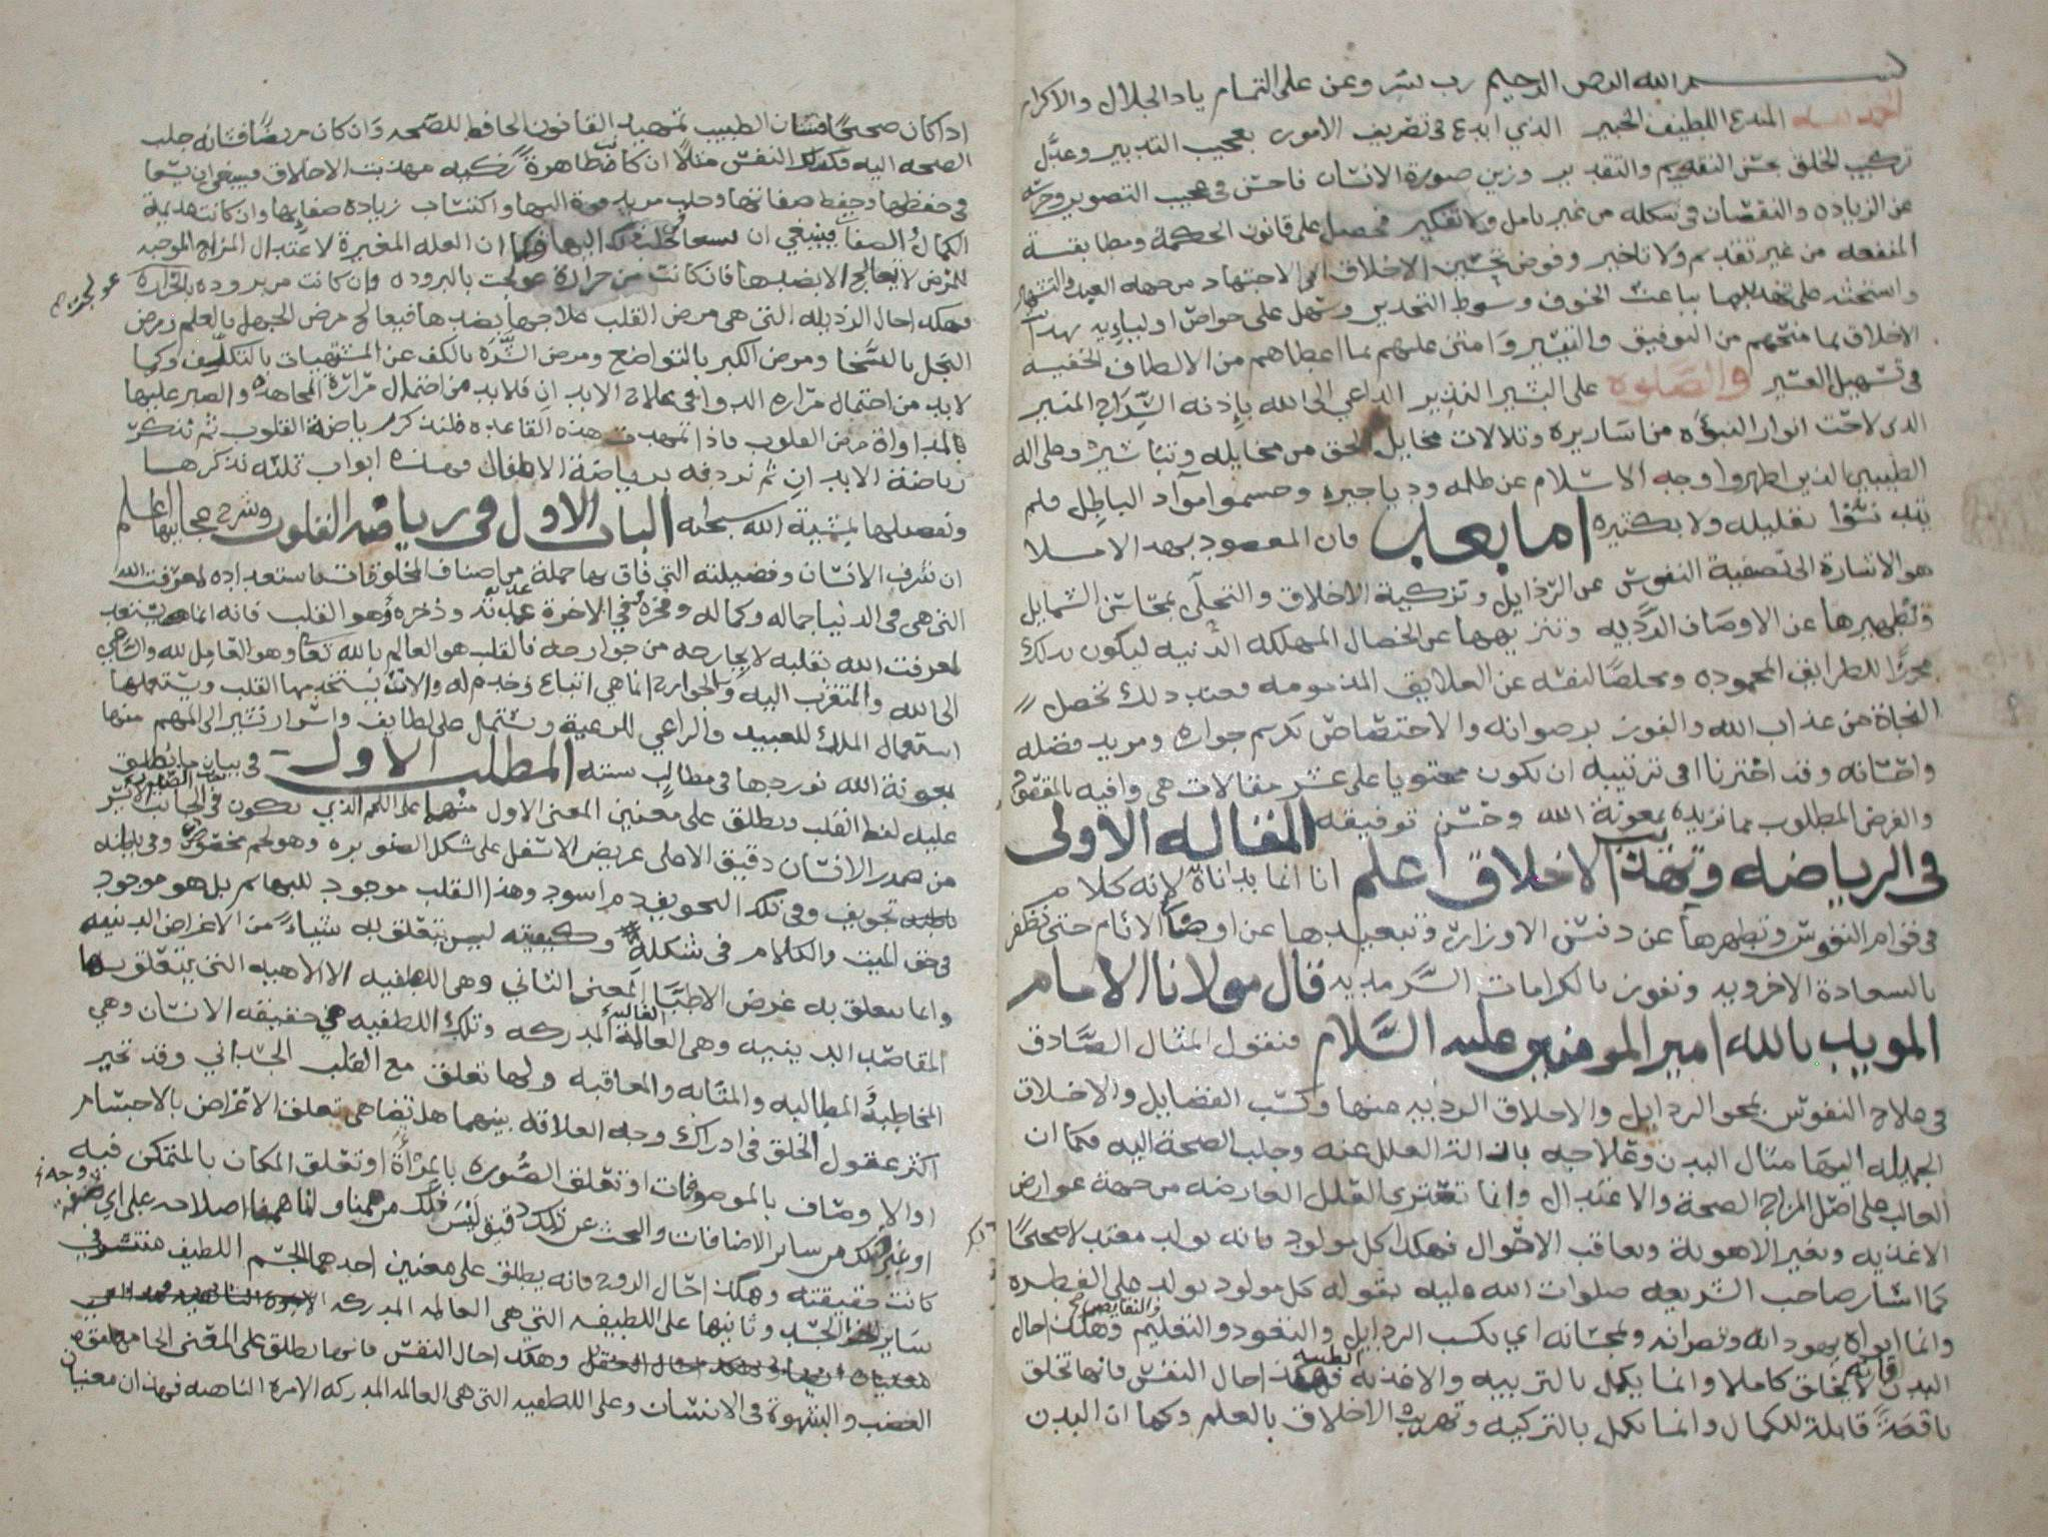 بسم الله الرحمن الرحيم رب يسر وعن على التمام ياذا الجلال والاكرام
الحمد لله المبدع اللطيف الخبير الذي ابدع في تصريف الامور بعجيب التدبير وعدل
تركيب الخلق بحسن التقويم والتقدير وزين صورة الانسان فاحسن في عجيب التصوير وحرسه
عن الزياده والنقصان في شكله من غير تامل ولا تفكير فحصل على قانون الحكمة ومطابقة
المنفعه من غير تقديم ولا تاخير وفوض تحسين الاخلاق الى الاجتهاد من جهه العبد والتشمير
واستحثه على تهذيبها بباعث الخوف وسوط التحذير وسهل على خواص اوليايه تهذيب
الاخلاق بما منحهم من التوفيق والتيسير وامتن عليهم بما اعطاهم من الالطاف الخفيه
في تسهيل العسير والصلوه على البشير النذير الداعي الى الله باذنه السراج المنير
الذى لاحت انوار النبوه من اساريره وتلالات مخايل الحق من مخايله وتباشيره وعلى اله
الطيبين الذين اظهروا وجه الاسلام عن ظلمه ودياجيره وحسموا مواد الباطل فلم
يتدنسوا بقليله ولا بكثيره اما بعد فان المقصود بهذا الاملا
هو الاشارة الى تصفية النفوس عن الرذايل وتزكية الاخلاق والتحلي بمحاسن الشمايل
وتطهيرها عن الاوصاف الرديه وتنزيهها عن الخصال المهلكه الدنيه ليكون بذلك
محرزا للطرايق المحموده ومخلصا لنفسه عن العلايق المذمومه وعند ذلك تحصل
النجاة من عذاب الله والفوز برضوانه والاختصاص بكريم جواره ومزيد فضله
واحسانه وقد اخترنا في ترتيبه ان يكون محتويا على عشر مقالات هي وافيه بالمقصود
والغرض المطلوب مما نريده بمعونة الله وحسن توفيقه المقاله الاولى
في الرياضه وتهذيب الاخلاق اعلم انا انما بداناه لانه كلام
في قوام النفوس وتطهرها عن دنس الاوزار وتبعيدها عن اوضار الاثام حتى تظفر
بالسعادة الاخرويه وتفوز بالكرامات السرمديه قال مولانا الامام
المويد بالله امير المومنين عليه السلام فنقول المثال الصادق
في علاج النفوس بمحو الرذايل والاخلاق الرديه منها وكسب الفضايل والاخلاق
الجميله اليها مثال البدن وعلاجه بازالة العلل عنه وجلب الصحة اليه فكما ان
الغالب على اصل المزاج الصحة والاعتدال وانما تعتري العلل العارضه من جهة عوارض
الاغذيه وتغير الاهوية وتعاقب الاحوال فهكذا كل مولود فانه يولد معتدلا صحيحا
كما اشار صاحب الشريعه صلوات الله عليه بقوله كل مولود يولد على الفطره
وانما ابواه يهودانه وينصرانه ويمجسانه اي يكسب الرذايل والنقايص بالتعود والتعليم وهكذا حال
البدن فانه لا يخلق كاملا وانما يكمل بالتربيه والاغذيه الطيبه فهكذا حال النفس فانها تخلق
ناقصة قابلة للكمال وانما تكمل بالتزكيه وتهذيب الاخلاق بالعلم وكما ان البدن
اذا كان صحيحا فشان الطبيب تمهيد القانون الحافظ للصحه وان كان مريضا فشانه جلب
الصحه اليه فكذلك النفس مثلا ان كانت طاهرة زكيه مهذبت الاخلاق فينبغي ان يسعا
في حفظها وحفظ صفاتها وجلب مزيد قوة اليها واكتساب زياده صفايها وان كانت عديمة
الكمال والصفا فينبغي ان يسعا في جلب ذلك اليها وكما ان العله المغيرة لاعتدال المزاج الموجبه
للمرض لا تعالج الا بضدها فان كانت من حرارة عولجت بالبروده وان كانت من بروده عولجت بالحرارة
فهكذا حال الرذيله التي هي مرض القلب علاجها بضدها فيعالج مرض الجهل بالعلم ومرض
البخل بالسخا ومرض الكبر بالتواضع ومرض الشره بالكف عن المشتهيات بالتكليف وكما
لا بد من احتمال مرارة الدوا في علاج الابدان فلا بد من احتمال مرارة المجاهده والصبر عليها
بالمداواة مرض القلوب فاذا تمهدت هذه القاعده فلنذكر رياضة القلوب ثم نذكر
رياضة الابدان ثم نردفه برياضة الاطفال فهذه ابواب ثلثه نذكرها
ونفصلها بمشية الله سبحانه الباب الاول في رياضه القلوب وشرح عجايبها اعلم
ان شرف الانسان وفضيلته التي فاق بها جملة من اصناف المخلوقات باستعداده لمعرفت الله
التي هي في الدنيا جماله وكماله وفخره وفي الاخرة عدته وذخره وهو القلب فانه انما يستعد
لمعرفت الله بقلبه لا بجارحه من جوارحه فالقلب هو العالم بالله تعالى وهو العامل لله والساعي
الى الله والمتقرب اليه والجوارح انما هي اتباع وخدم له والات يستخدمها القلب ويستعملها
استعمال الملك للعبيد والراعي للرعية ويشتمل على لطايف واسرار نشير الى المهم منها
بمعونة الله نوردها في مطالب سته المطلب الاول في بيان ما يطلق
عليه لفظ القلب ويطلق على معنيين المعنى الاول منهما على اللحم الذي يكون في الجانب الايسر
من صدر الانسان دقيق الاعلى عريض الاسفل على شكل الصنوبره وهو لحم مخصوص وفي باطنه
تجويف وفي ذلك التجويف دم اسود وهذا القلب موجود للبهايم بل هو موجود
في حق الميت والكلام في شكله وكيفيته ليس يتعلق به شيا من الاغراض الدينيه
وانما يتعلق به غرض الاطبا المعنى الثاني وهي اللطفيه الالاهيه التي يتعلق بها
المقاصد الدينيه وهي العالمة المدركه وتلك اللطفيه هي حقيقه الانسان وهي
المخاطبة المطالبه والمثابه والمعاقبه ولها تعلق مع القلب الجسداني وقد تحير
اكثر عقول الخلق في ادراك وجه العلاقه بينهما هل تضاهي تعلق الاعراض بالاجسام
او الاوصاف بالموصوفات او تعلق الصوره بالمرأة او تعلق المكان بالمتمكن فيه
او غير ذلك من سائر الاضافات والبحث عن ذلك دقيق ليس ذلك من همنا وانما همنا اصلاحه على اي وجه
كانت حقيقته وهكذا حال الروح فانه يطلق على معنيين احدهما الجسم اللطيف منتشر في
ساير الجسد وثانيها على اللطيفه التي هي العالمه المدركه
وهكذا حال النفس فانها يطلق على المعنى الجامع لقوه
الغضب والشهوة في الانسان وعلى اللطفيه التي هي العالمه المدركه الامره الناهيه فهذان معنيان